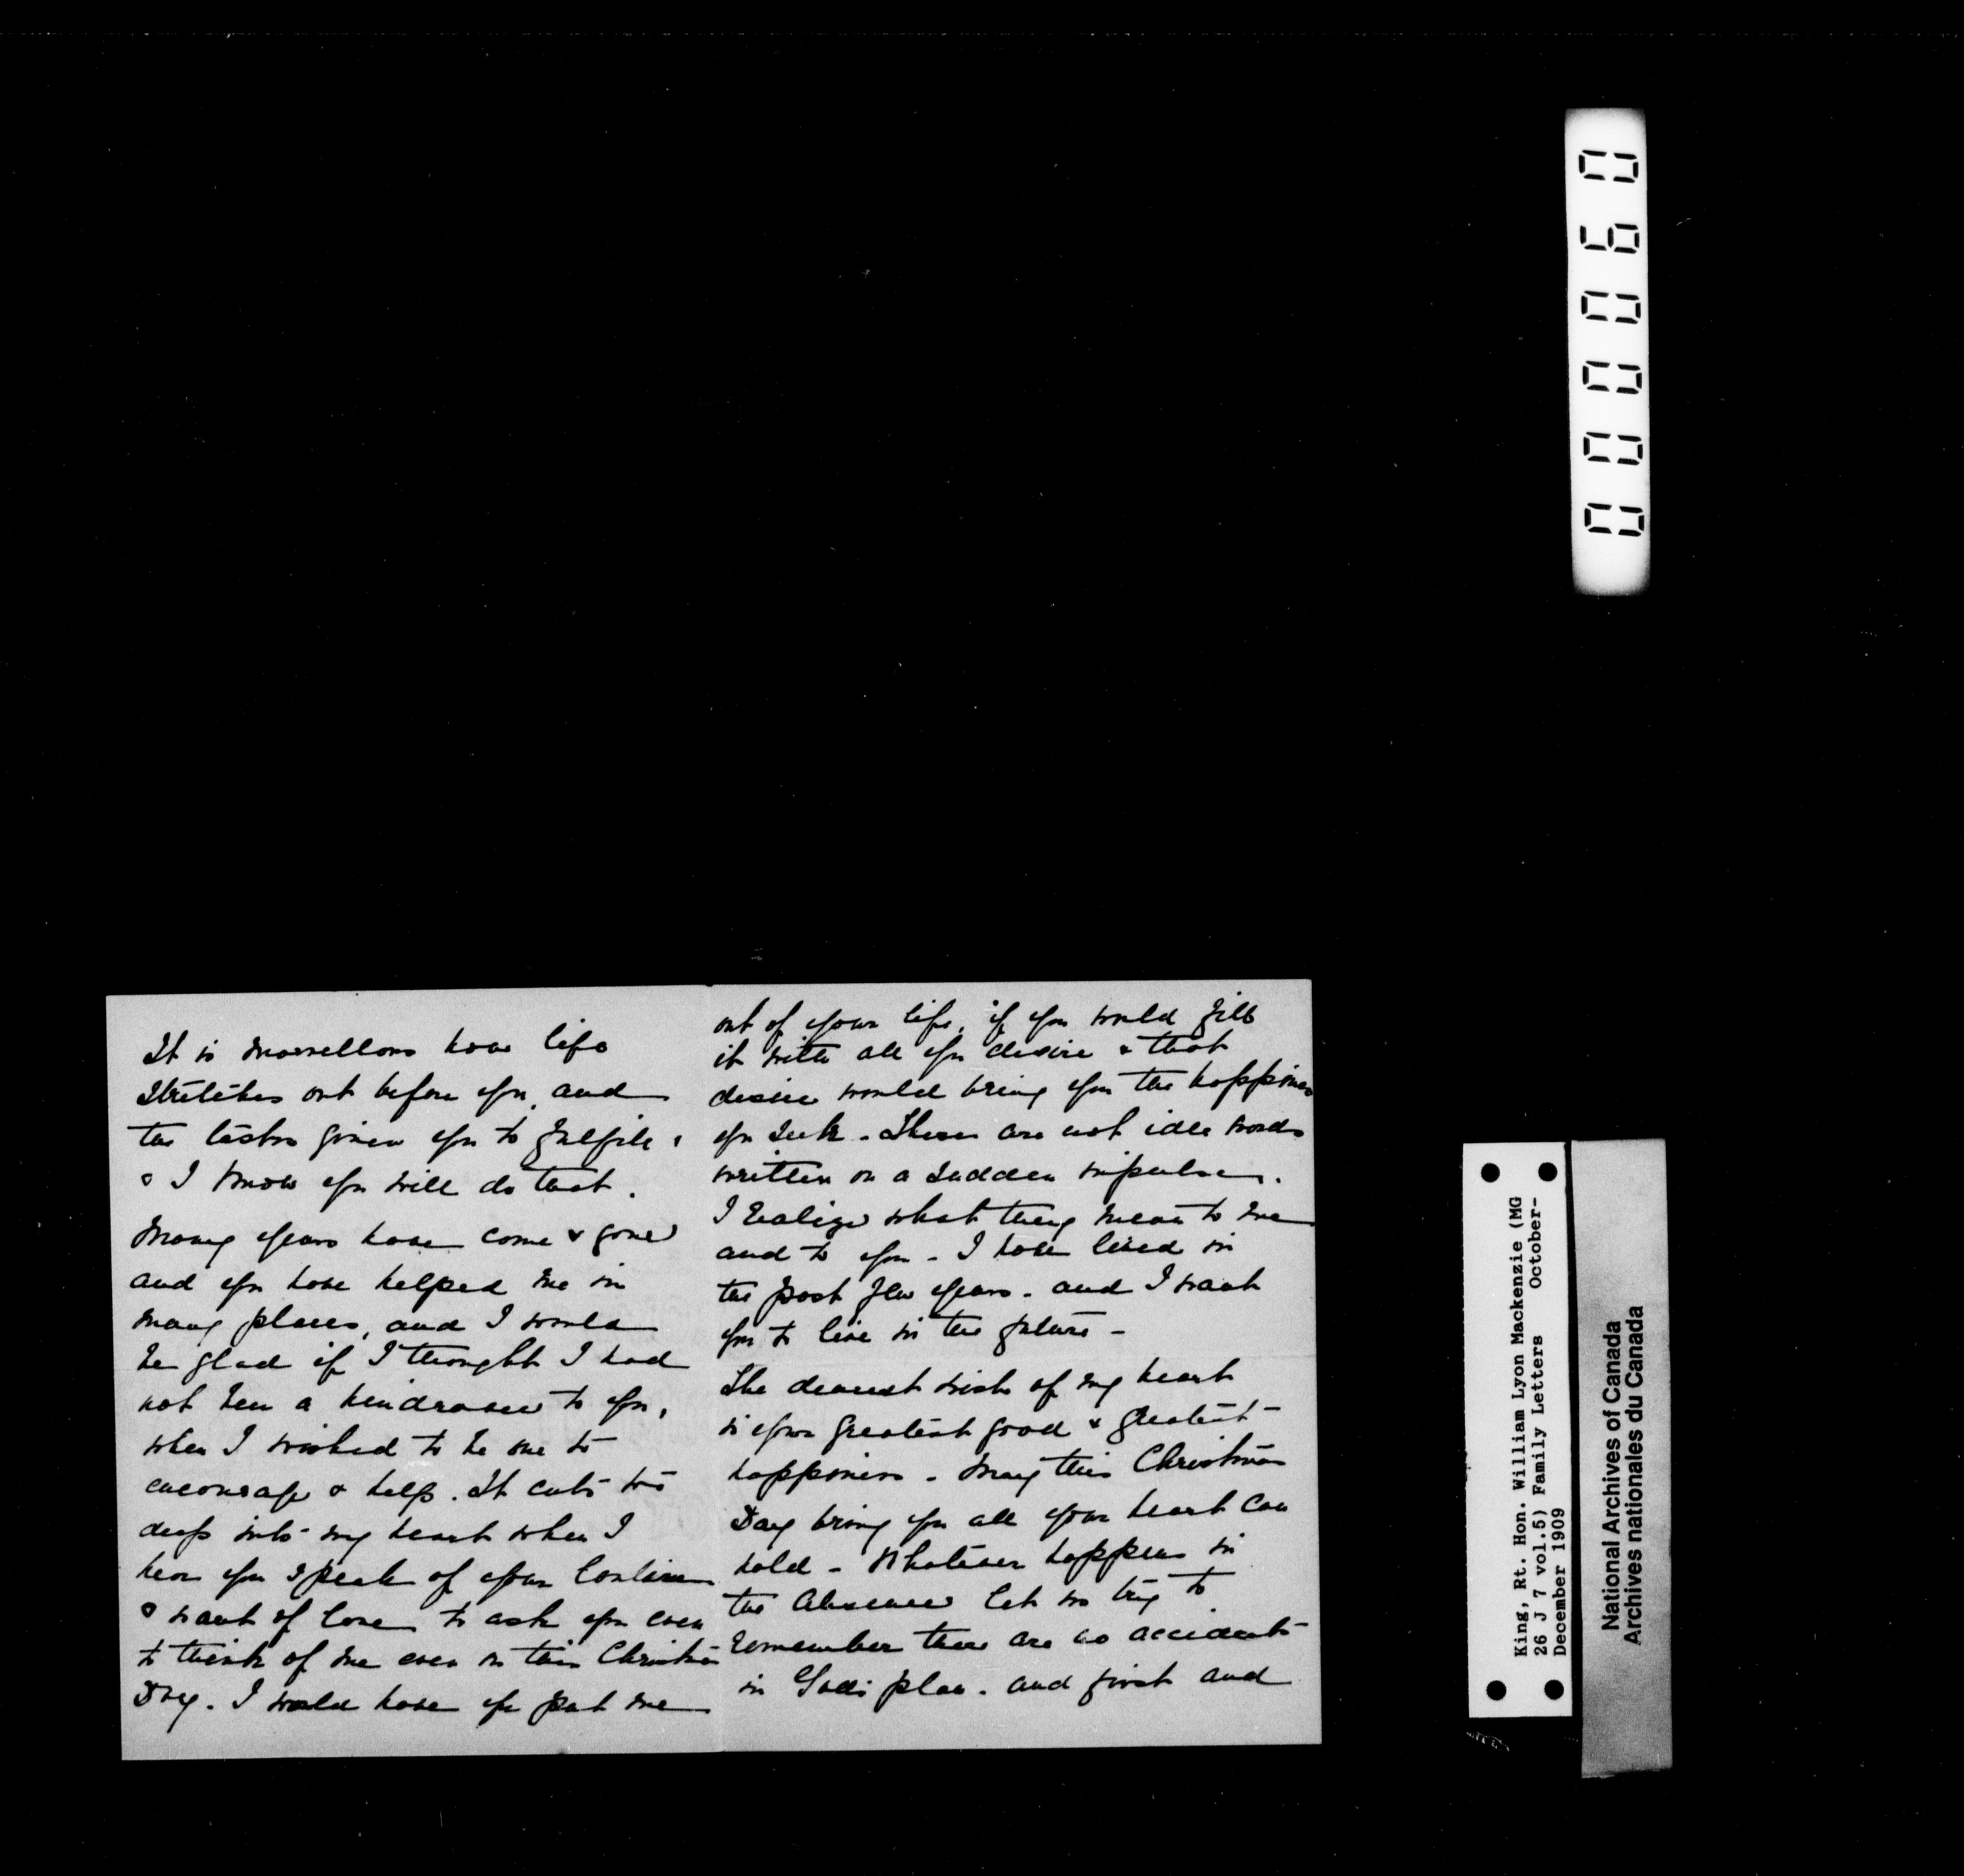 It is marvellous how life
stretches out before you, and
the tasks given you to fulfill,
& I know you will do that.
Many years have come & gone
and you have helped me in
many places, and I would
be glad if I thought I had
not been a hindrance to you,
when I wished to be one to
encourage & help. It cuts too
deep into my heart when I
hear you speak of your
& want of love to ask you even
to think of me even on this Christmas
Day. I would have you put me
out of your life, if you would fill
it with all you desire & that
desire would bring you the happiness
you seek. These are not idle words
written on a sudden impulse.
I realize what they mean to me
and to you - I have lived in
the past few years. and I want
you to live in the future -
The dearest wish of my heart
is your greatest good & greatest
happiness. May this Christmas
Day bring you all your heart can
hold - Whatever happens in
the absence let us try to
remember there are no accidents
in God's plan. and first and
000060
King, Rt. Hon. William Lyon Mackenzie (MG
26 J 7 vol.5) Family Letters October-
December 1909
National Archives of Canada
Archives nationales du Canada